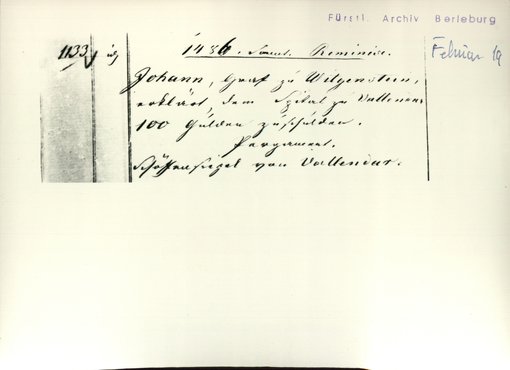 Fürstl. Archiv Berleburg
1133
1486. Sonnt. Reminisc.
Februar 19
Johann, Graf zu Witgenstein,
erklärt, dem Spital zu Vallendar
100 Gulden zu schulden.
Pergament.
Schöffensiegel von Vallendar.